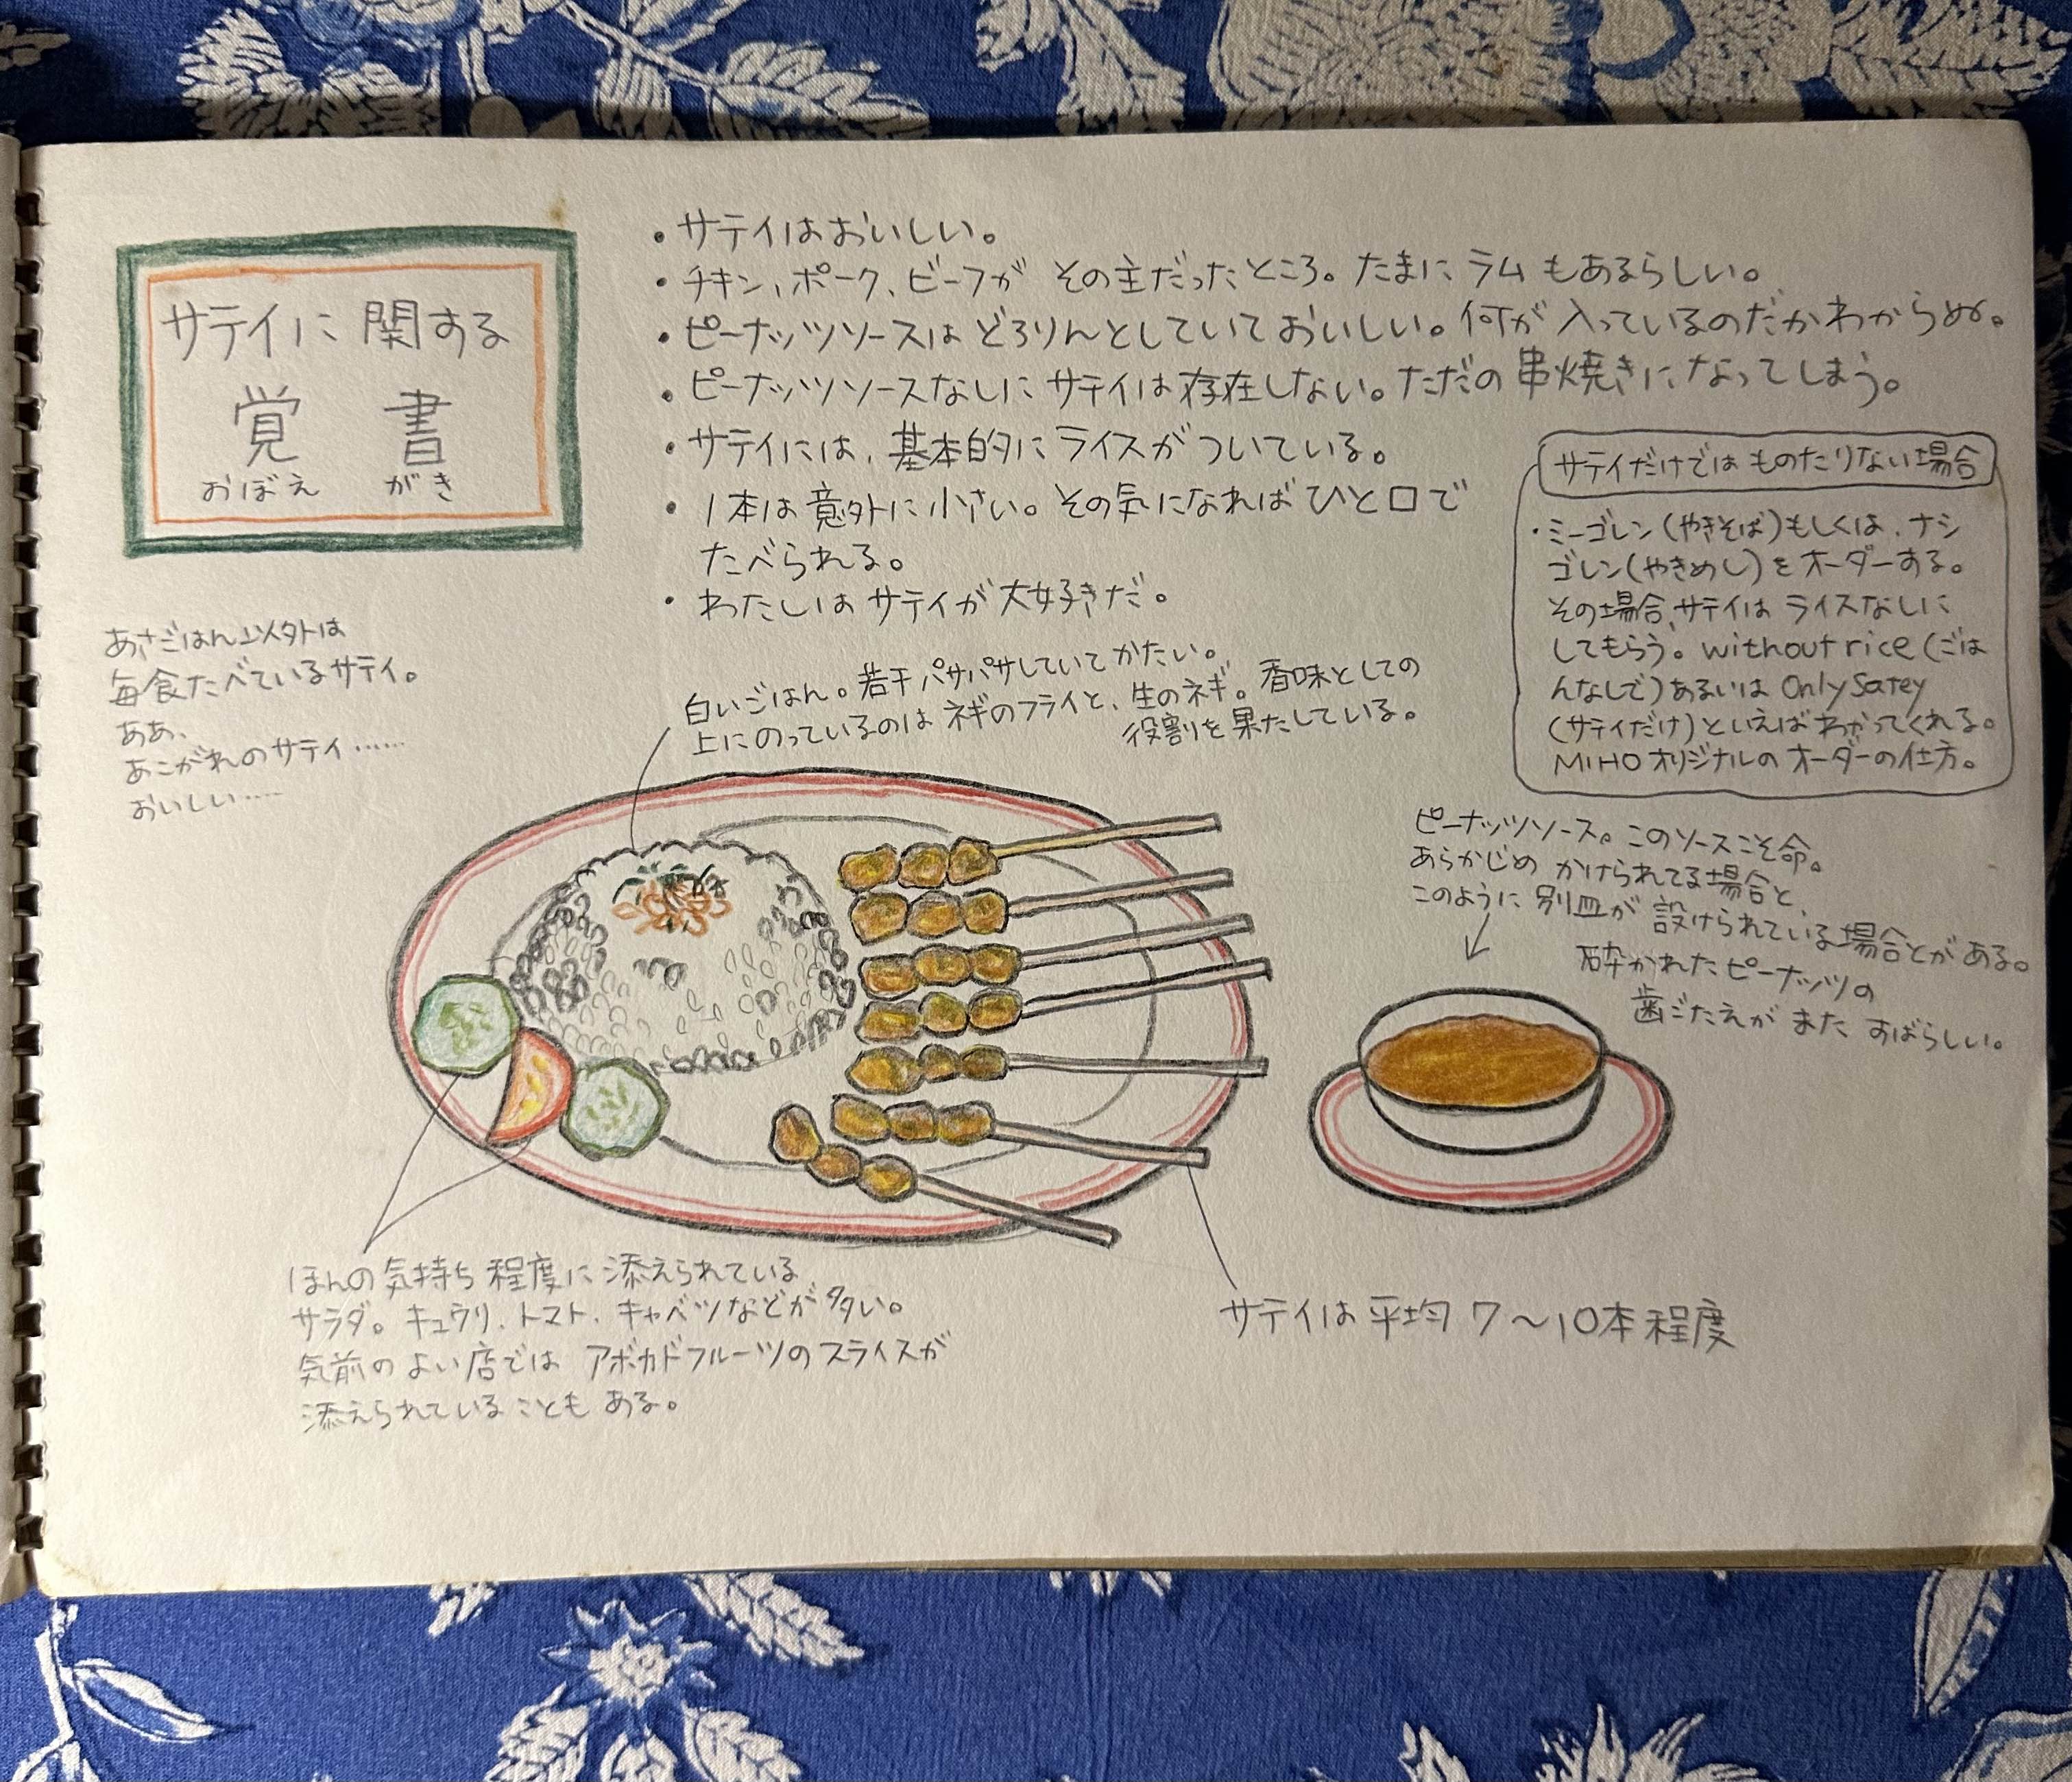 サテイに関する
覚書
おぼえがき
・サテイはおいしい。
・チキン、ポーク、ビーフが その主だったところ。たまに ラム もあるらしい。
・ピーナッツソースは どろりんとしていて おいしい。何が 入っているのだかわからぬ。
・ピーナッツソースなしに サテイは 存在しない。ただの 串焼きに なってしまう。
・サテイには、基本的に ライスが ついている。
・1本は 意外に 小さい。その気になれば ひと口で
たべられる。
・わたしは サテイが 大好きだ。
サテイだけでは ものたりない場合
・ミーゴレン(やきそば)もしくは、ナシ
ゴレン(やきめし)を オーダーする。
その場合、サテイは ライスなしに
してもらう。without rice (ごは
んなしで)あるいは Only Satey
(サテイだけ)といえば わかってくれる。
MIHOオリジナルの オーダーの仕方。
あさごはん以外は
毎食たべているサテイ。
ああ、
あこがれのサテイ……
おいしい……
白いごはん。若干 パサパサしていて かたい。
上にのっているのは ネギのフライと、生のネギ。香味としての
役割を 果たしている。
ピーナッツソース。このソースこそ命。
あらかじめ かけられてる場合と、
このように 別皿が 設けられている場合とが ある。
砕かれた ピーナッツの
歯ごたえが また すばらしい。
ほんの 気持ち 程度に 添えられている
サラダ。キュウリ、トマト、キャベツなどが 多い。
気前の よい店では アボカドフルーツの スライスが
添えられている ことも ある。
サテイは 平均 7〜10本 程度